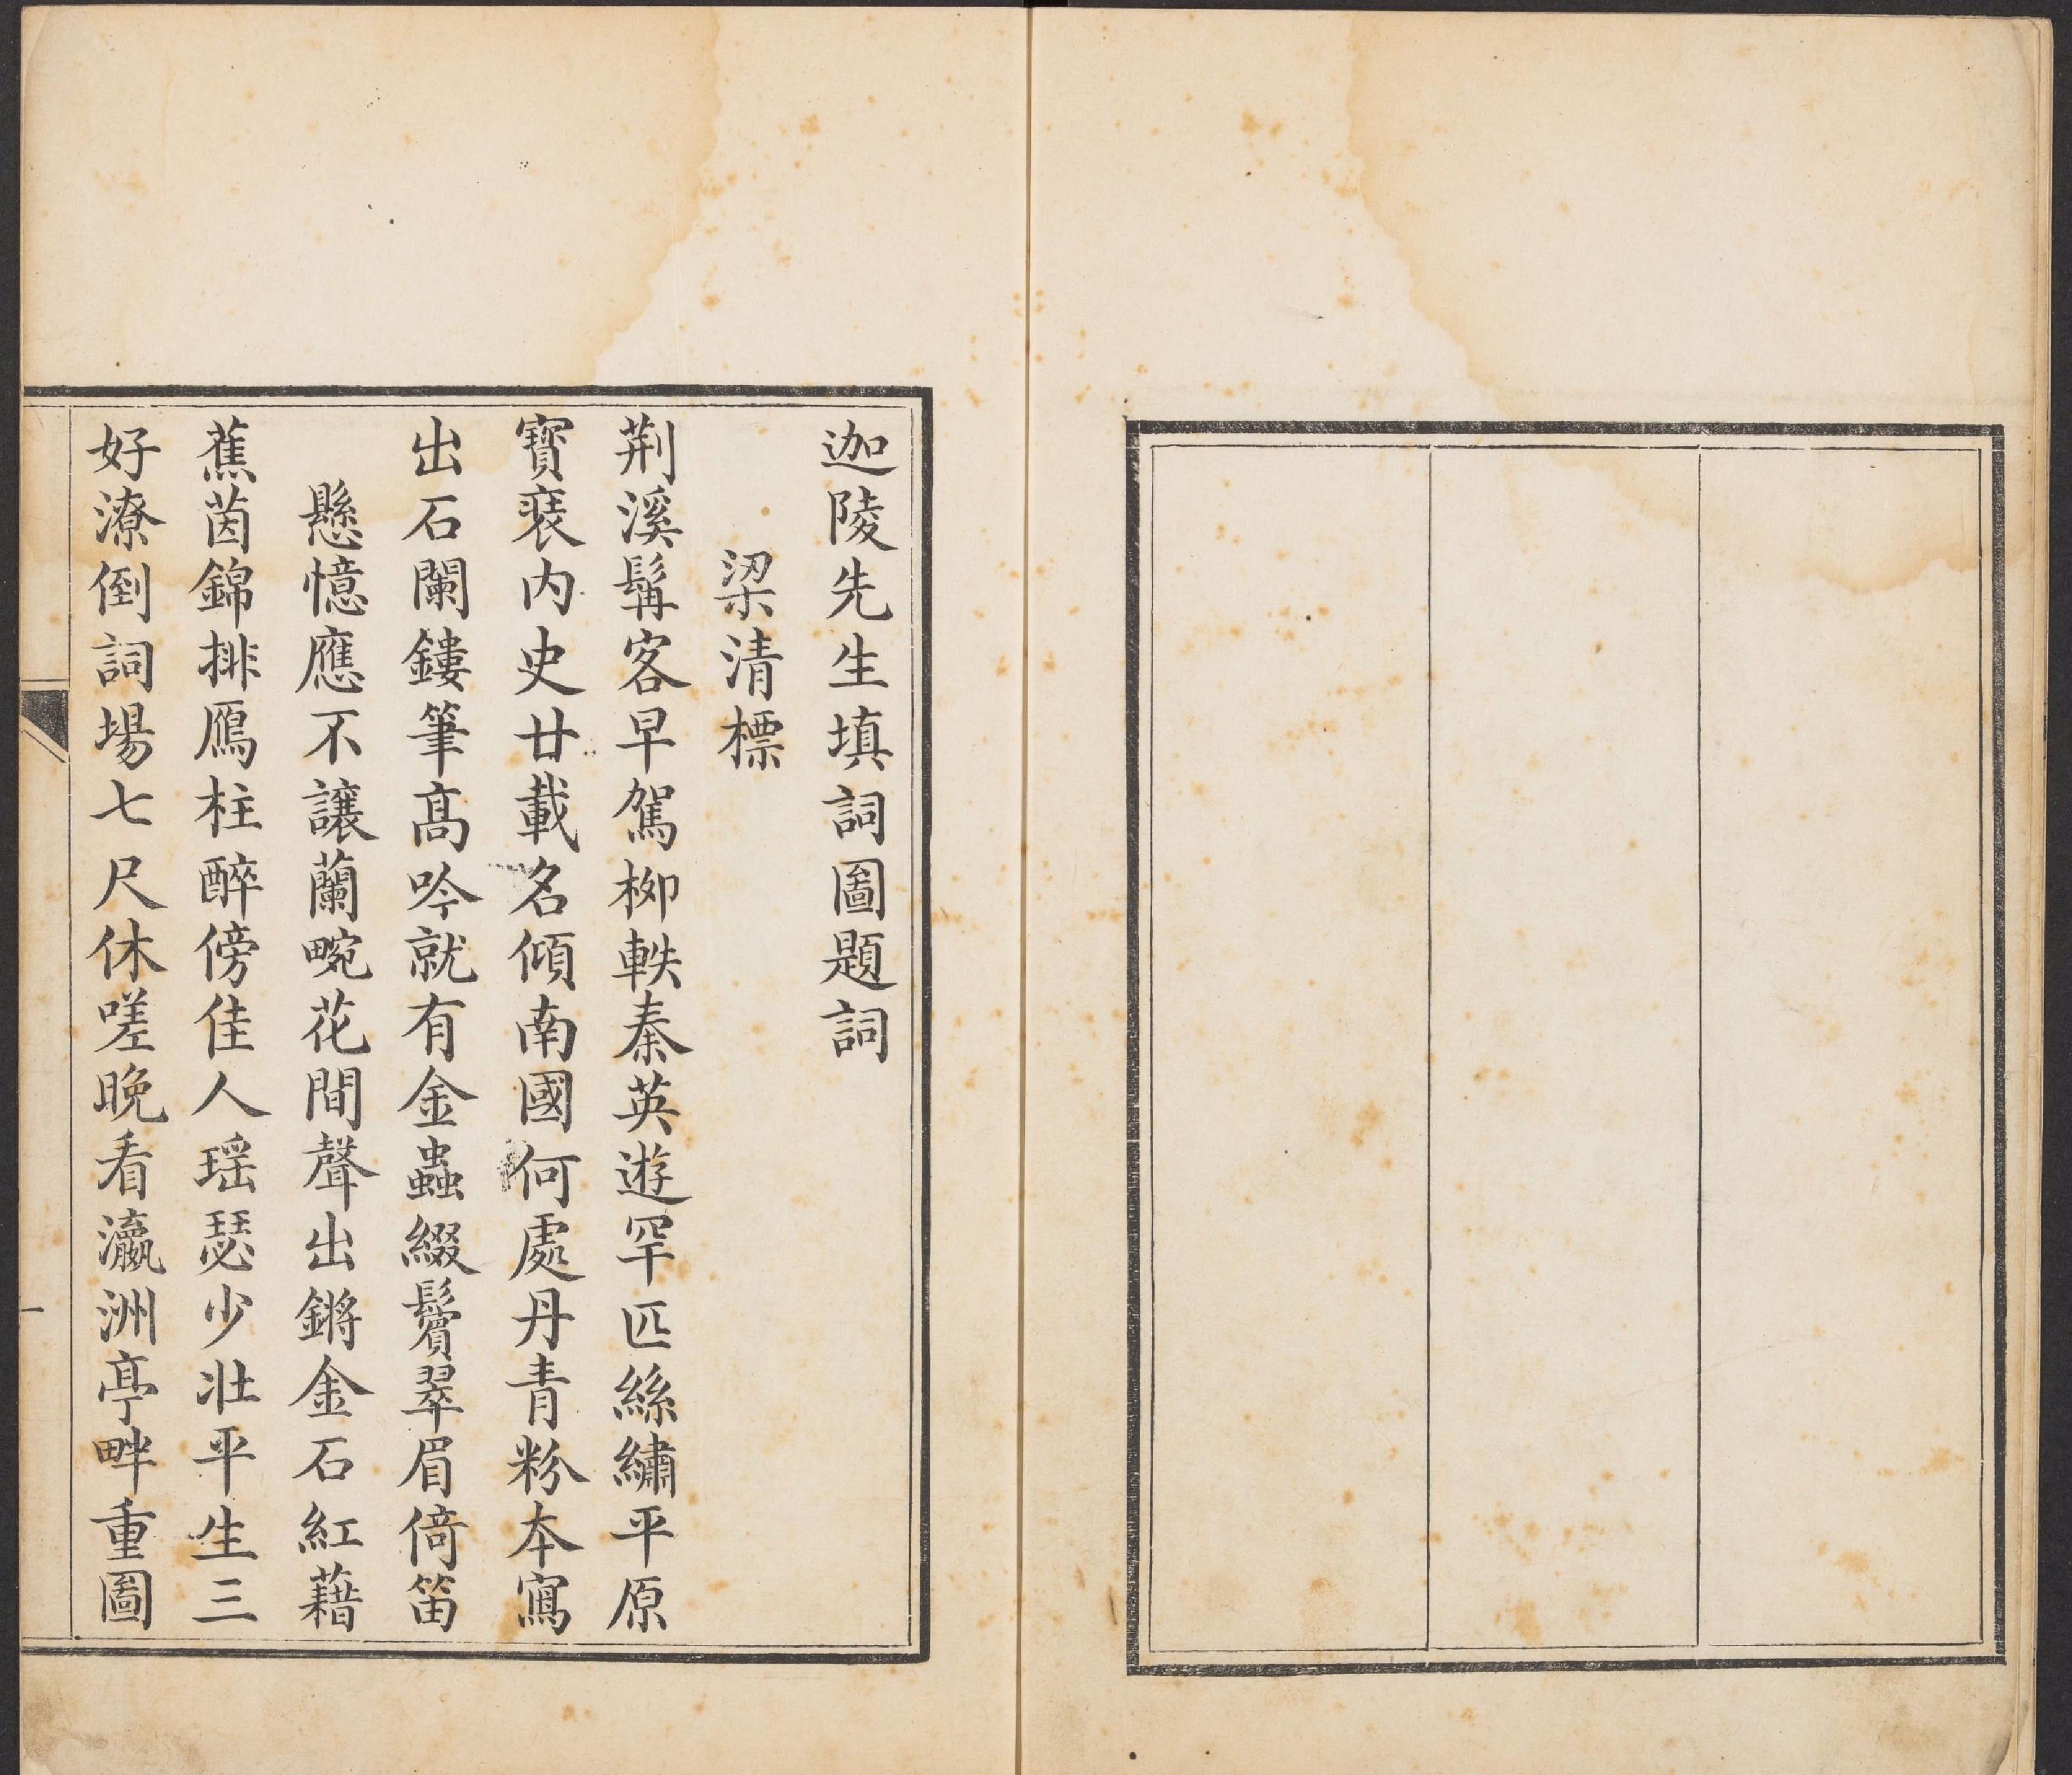 迦陵先生填詞圖題詞
梁清標
荆溪髯客早駕栁軼秦英遊罕匹絲繡平原
寶裹内史廿載名傾南國何處丹青粉本寫
出石闌鏤筆高吟就有金蟲綴鬢翠眉倚笛
懸憶應不讓蘭畹花間聲出鏘金石紅藉
蕉茵錦排鴈柱醉傍佳人瑶瑟少壯平生三
好潦倒詞場七尺休嗟晚看瀛洲亭畔重圖
一